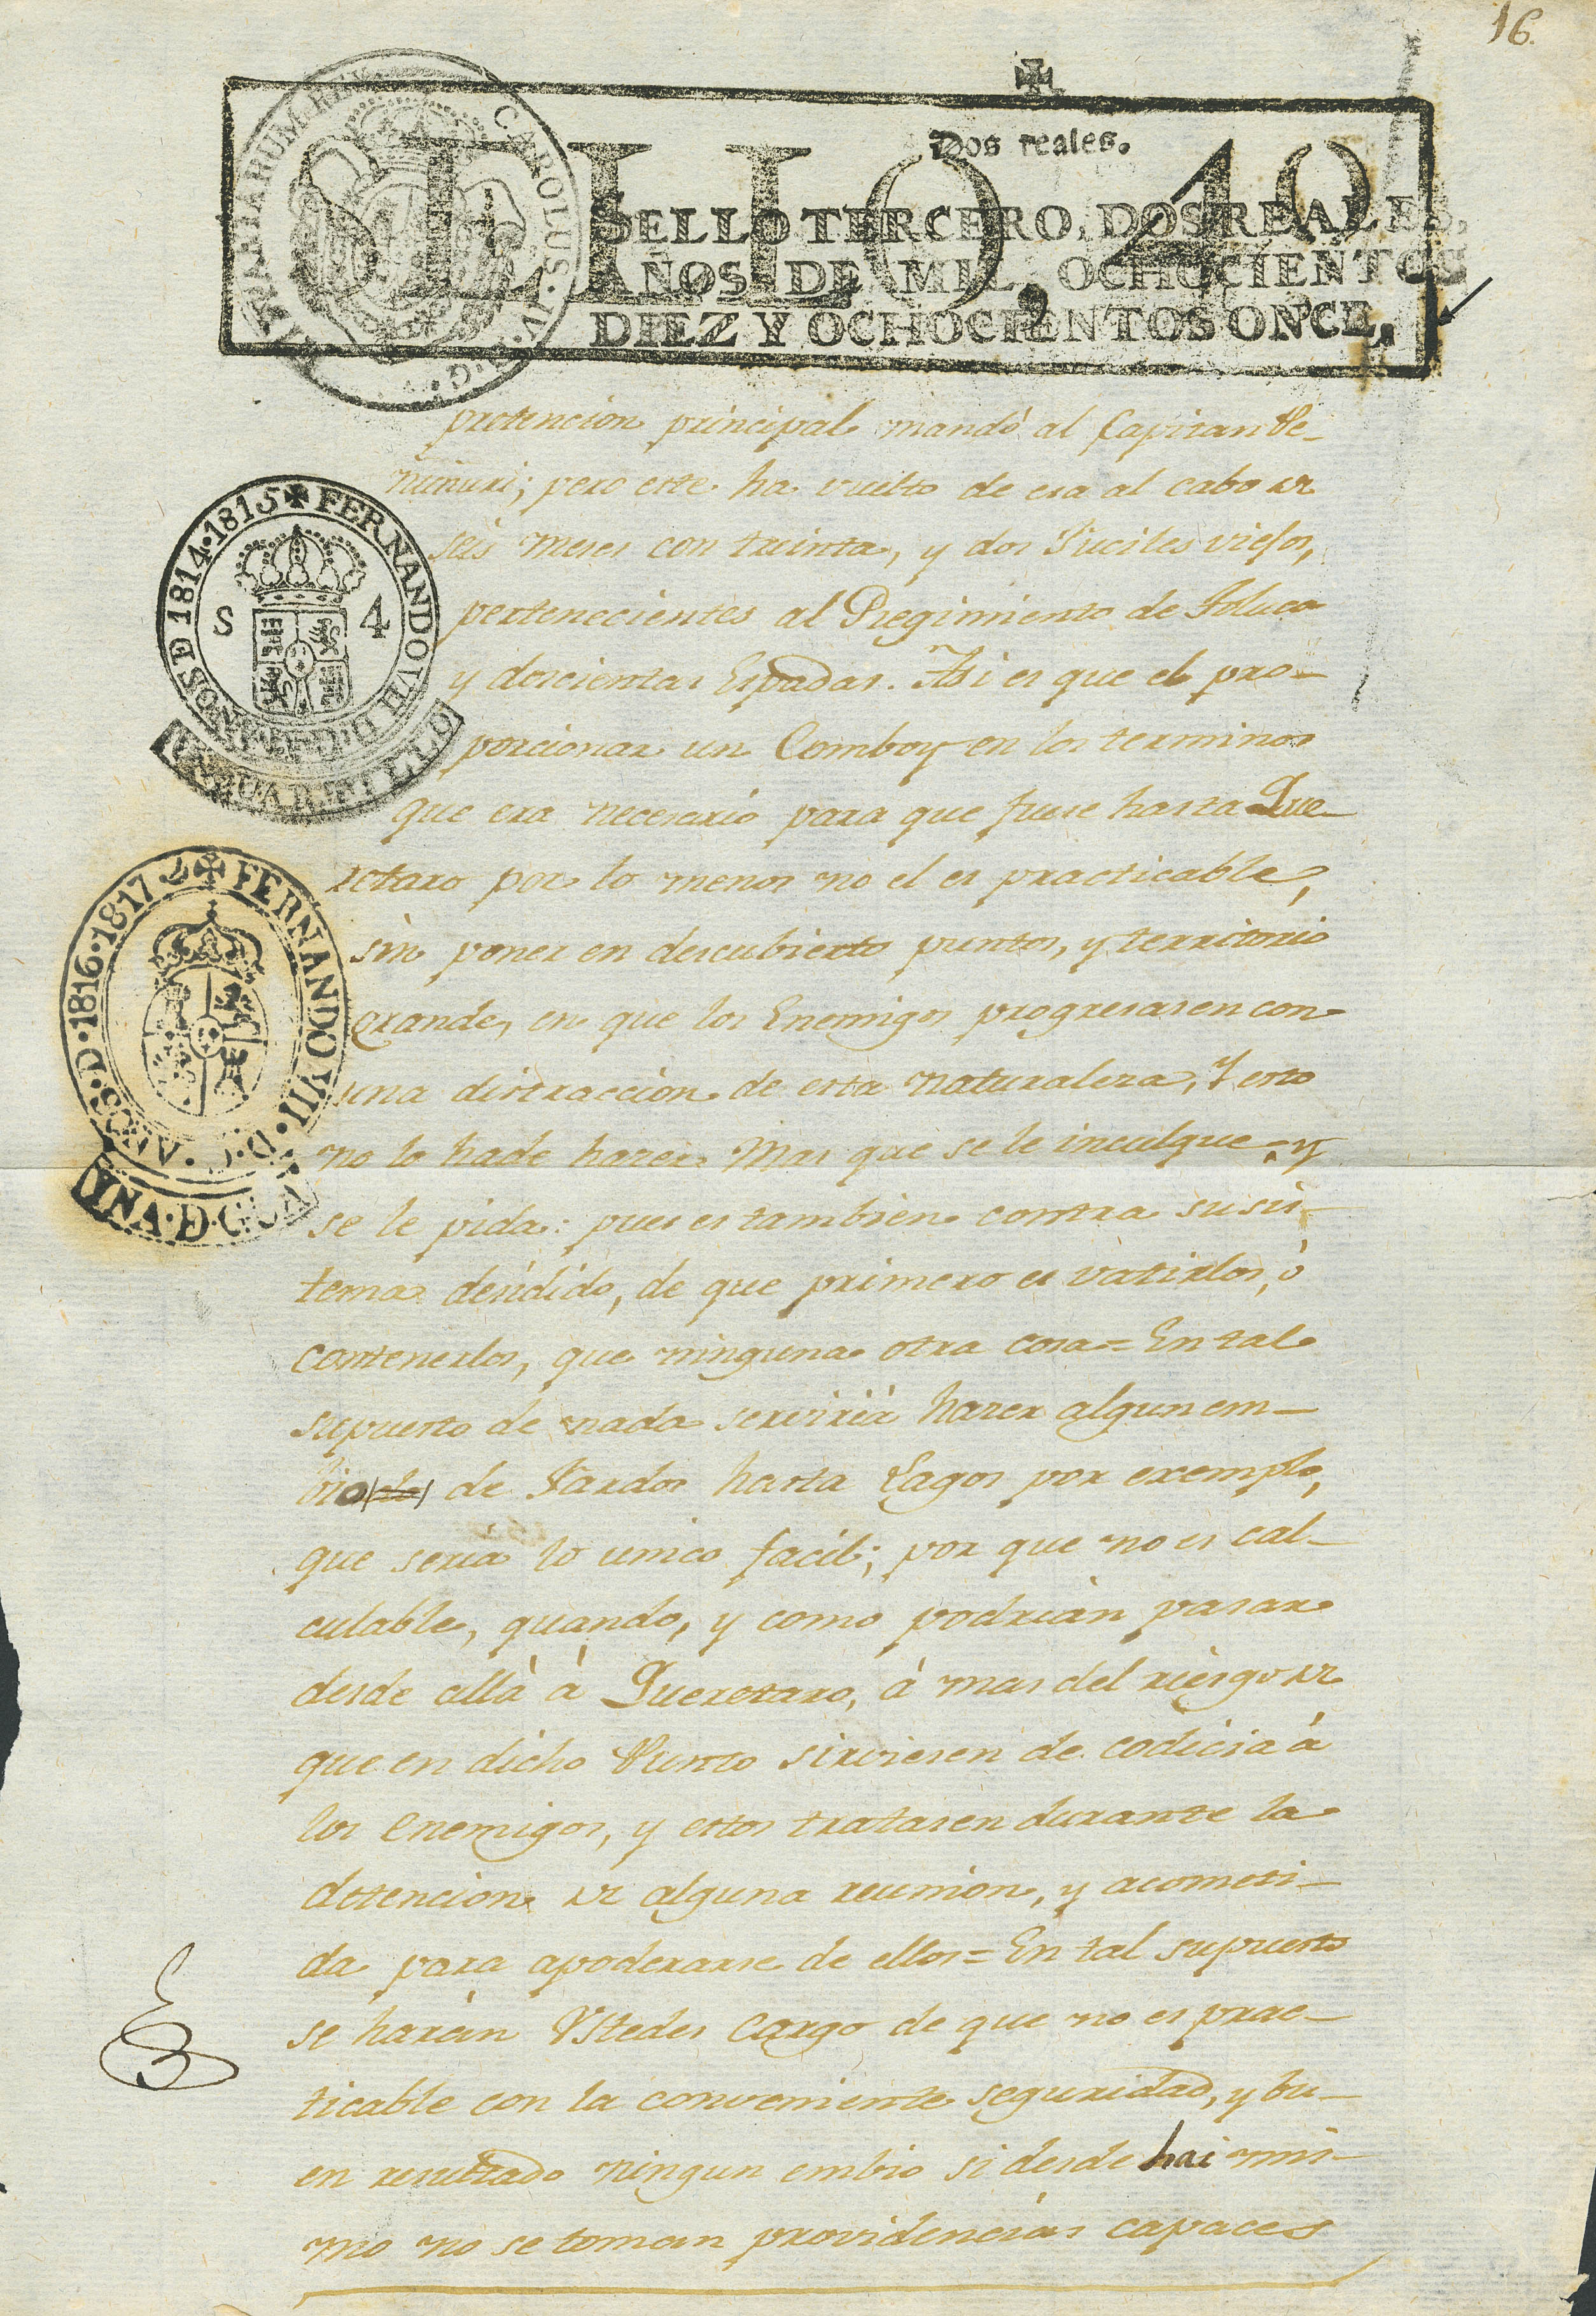 16.
Dos reales.
SELLO 4O
CAROLUS·IV·D·G·
HISPANIARUM REX
SELLO TERCERO, DOS REALES,
AÑOS DE MIL OCHOCIENTOS
DIEZ Y OCHOCIENTOS ONCE.
pretencion principal mandó al Capitan Pe-
; pero este ha vuelto de esa al cabo de
seis meses con treinta, y dos Fuciles viejos,
FERNANDO VII D·G· AÑOS D 1814·1815
S 4
UN QUARTILLO
pertenecientes al Regimiento de Toluca
y doscientas Espadas. Asi es que el pro-
porcionar un Comboy en los terminos
que era necesario para que fuese hasta Que-
retaro por lo menos no el es practicable,
sin poner en descubierto puntos, y territorio
FERNANDO VII·D·G·AÑOS·D·1816·1817
grande, en que los Enemigos progresasen con
una distraccion de esta naturaleza, Y esto
no lo hade hazer Mas que se le inculque, y
se le pida: pues es tambien contra su sis-
tema desidido, de que primero es vatirlos, ó
contenerlos, que ninguna otra cosa = En tal
supuesto de nada serviria hazer algun em-
bio de Fardos hasta Lagos por exemplo,
que seria lo unico facil; por que no es cal-
culable, quando, y como podrian pasar
desde allà à Queretaro, à mas del riesgo de
que en dicho Punto sirviesen de codicia à
los Enemigos, y estos tratasen durante la
detencion de alguna reunion, y acometi-
da para apoderarse de ellos = En tal supuesto
se haràn Ustedes cargo de que no es prac-
ticable con la conveniente seguridad, y bu-
en resultado ningun embio si desde hai mis-
mo no se toman providencias capaces